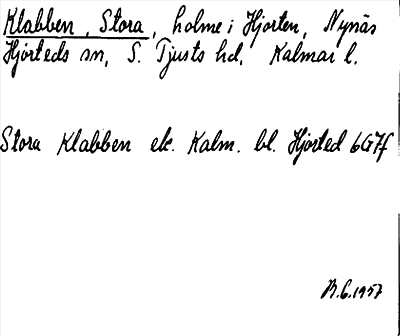 Klabben, Stora, holme i Hjorten, Nynäs
Hjorteds sn, S. Tjusts hd, Kalmar l.
Stora Klabben ek. Kalm. bl. Hjorted 6G7f
B.G.1957